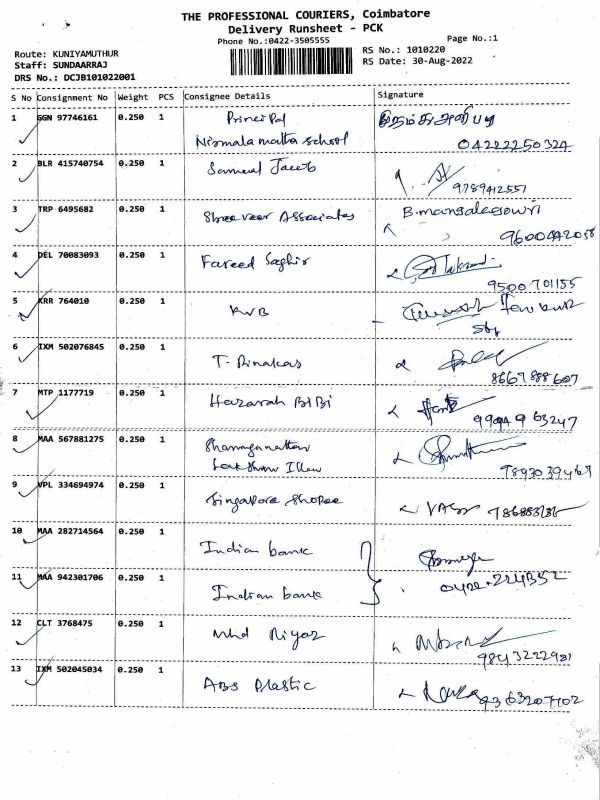 THE PROFESSIONAL COURIERS, Coimbatore
Delivery Runsheet - PCK
Phone No.:0422-3505555
Page No.:1
Route: KUNIYAMUTHUR
RS No.: 1010220
Staff: SUNDAARRAJ
RS Date: 30-Aug-2022
DRS No.: DCJB101022001
S No Consignment No Weight PCS Consignee Details Signature
1 GGN 97746161 0.250 1 Principal
Nirmala matha school 04222250324
2 BLR 415740754 0.250 1 Samuel Jacob
9789412551
3 TRP 6495682 0.250 1 Shree veer Associates B.mangalagowri
9600442058
4 DEL 70083093 0.250 1 Fareed Saghir
9500701155
5 KRR 764010 0.250 1 KVB
6 IXM 502076845 0.250 1 T.
8667888607
7 MTP 1177719 0.250 1 Hazarah BiBi
9994963247
8 MAA 567881275 0.250 1
9 VPL 334694974 0.250 1 Singapore Shopee
10 MAA 282714564 0.250 1 Indian bank
11 MAA 942301706 0.250 1 Indian bank
12 CLT 3768475 0.250 1 Mhd Riyaz
9843222981
13 IXM 502045034 0.250 1 ABS Plastic
9363207102